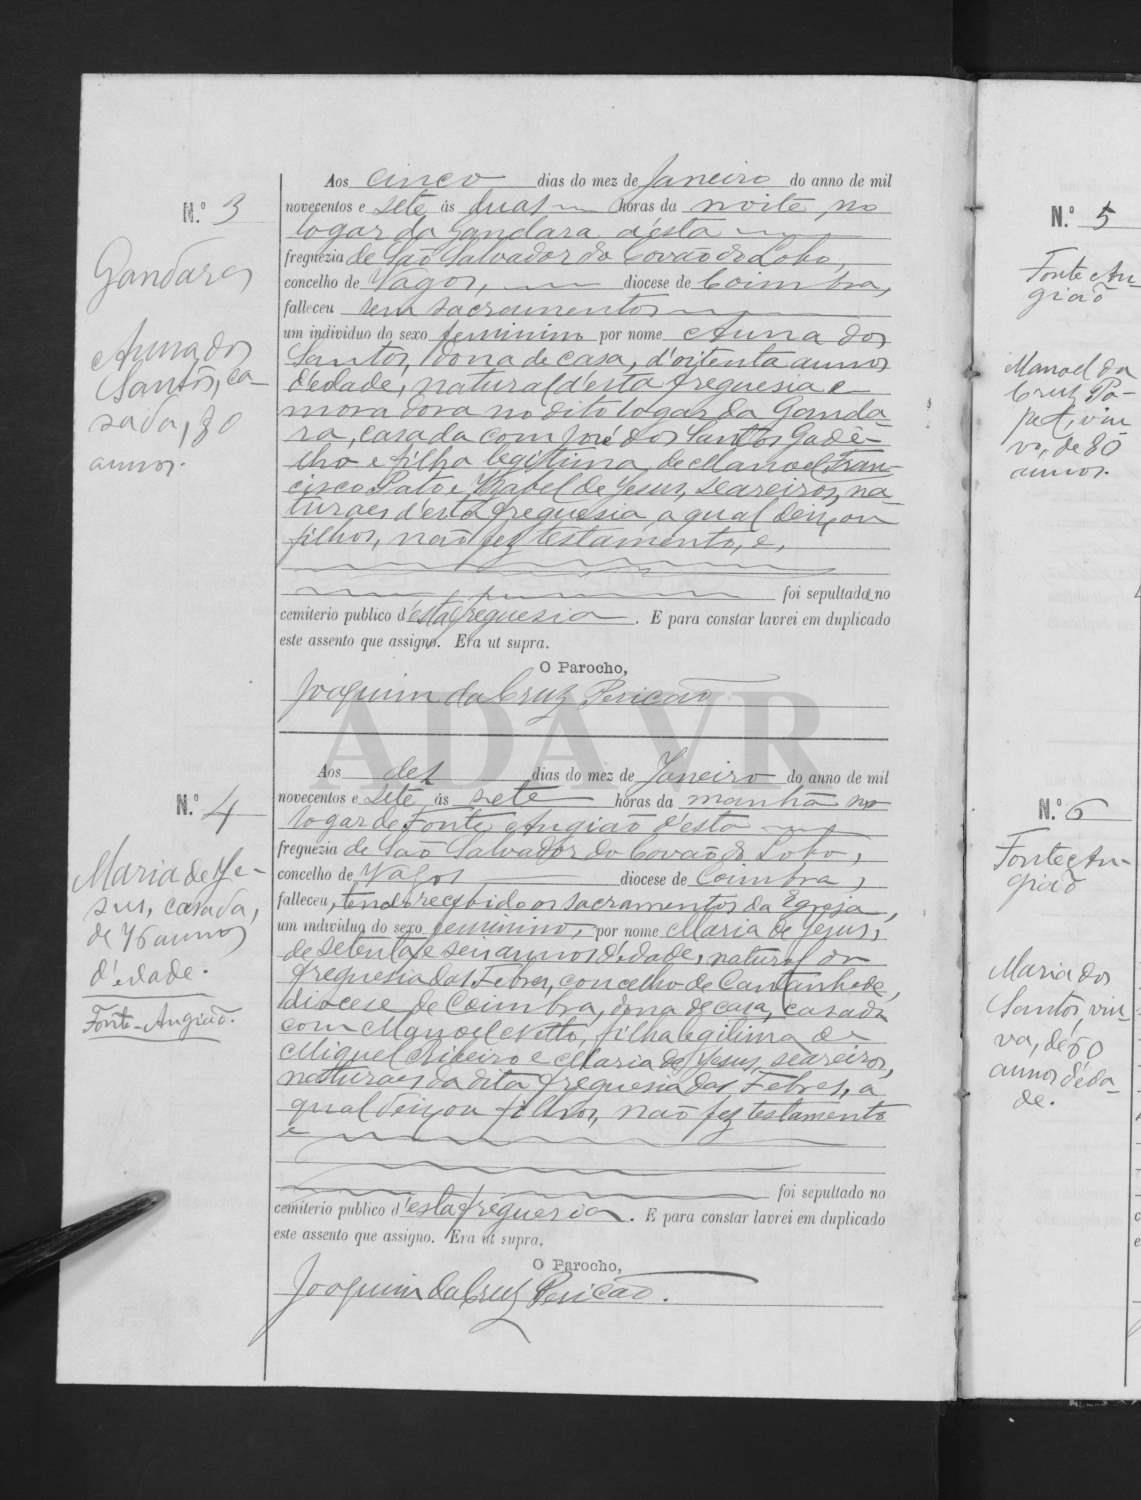 N.º 3
Gandara
Anna dos
Santos, ca-
sada, 80
annos.
Aos cinco dias do mez de Janeiro do anno de mil
novecentos e sete ás duas horas da noite no
logar da Gandara d'esta
freguezia de São Salvador do Covão do Lobo,
concelho de Vagos, diocese de Coimbra,
falleceu sem sacramentos
um individuo do sexo feminino por nome Anna dos
Santos, dona de casa, d'oitenta annos
d'edade, natural d'esta freguesia e
moradora no dito logar da Ganda-
ra, casada com José dos Santos Gadê-
lho e filha legitima de Manoel Fran-
cisco Pato e Izabel de Jesus, seareiros, na-
turaes d'esta freguesia, a qual deixou
filhos, não fez testamento, e,
foi sepultada no
cemiterio publico d'esta freguesia. E para constar lavrei em duplicado
este assento que assigno. Era ut supra.
O Parocho,
Joaquim da Cruz Pericão
ADAVR
N.º 4
Maria de Je-
sus, casada,
de 76 annos
d'edade.
Fonte-Angião.
Aos dez dias do mez de Janeiro do anno de mil
novecentos e sete ás sete horas da manhã no
logar de Fonte Angião d'esta
freguezia de São Salvador do Covão do Lobo,
concelho de Vagos diocese de Coimbra,
falleceu, tendo recebido os sacramentos da Egreja,
um individuo do sexo feminino, por nome Maria de Jesus,
de setenta e seis annos d'edade, natural da
freguesia das Febres, concelho de Cantanhede,
diocese de Coimbra, dona de casa, casada
com Manoel Netto, filha legitima de
Miguel Ribeiro e Maria de Jesus, seareiros,
naturaes da dita freguesia das Febres, a
qual deixou filhos, não fez testamento
e
foi sepultado no
cemiterio publico d'esta freguesia. E para constar lavrei em duplicado
este assento que assigno. Era ut supra.
O Parocho,
Joaquim da Cruz Pericão.
N.º 5
Fonte An-
gião
Manoel da
Cruz Pa-
, viu-
vo, de 80
annos.
N.º 6
Fonte An-
gião
Maria dos
Santos, viu-
va, de 60
annos d'eda-
de.